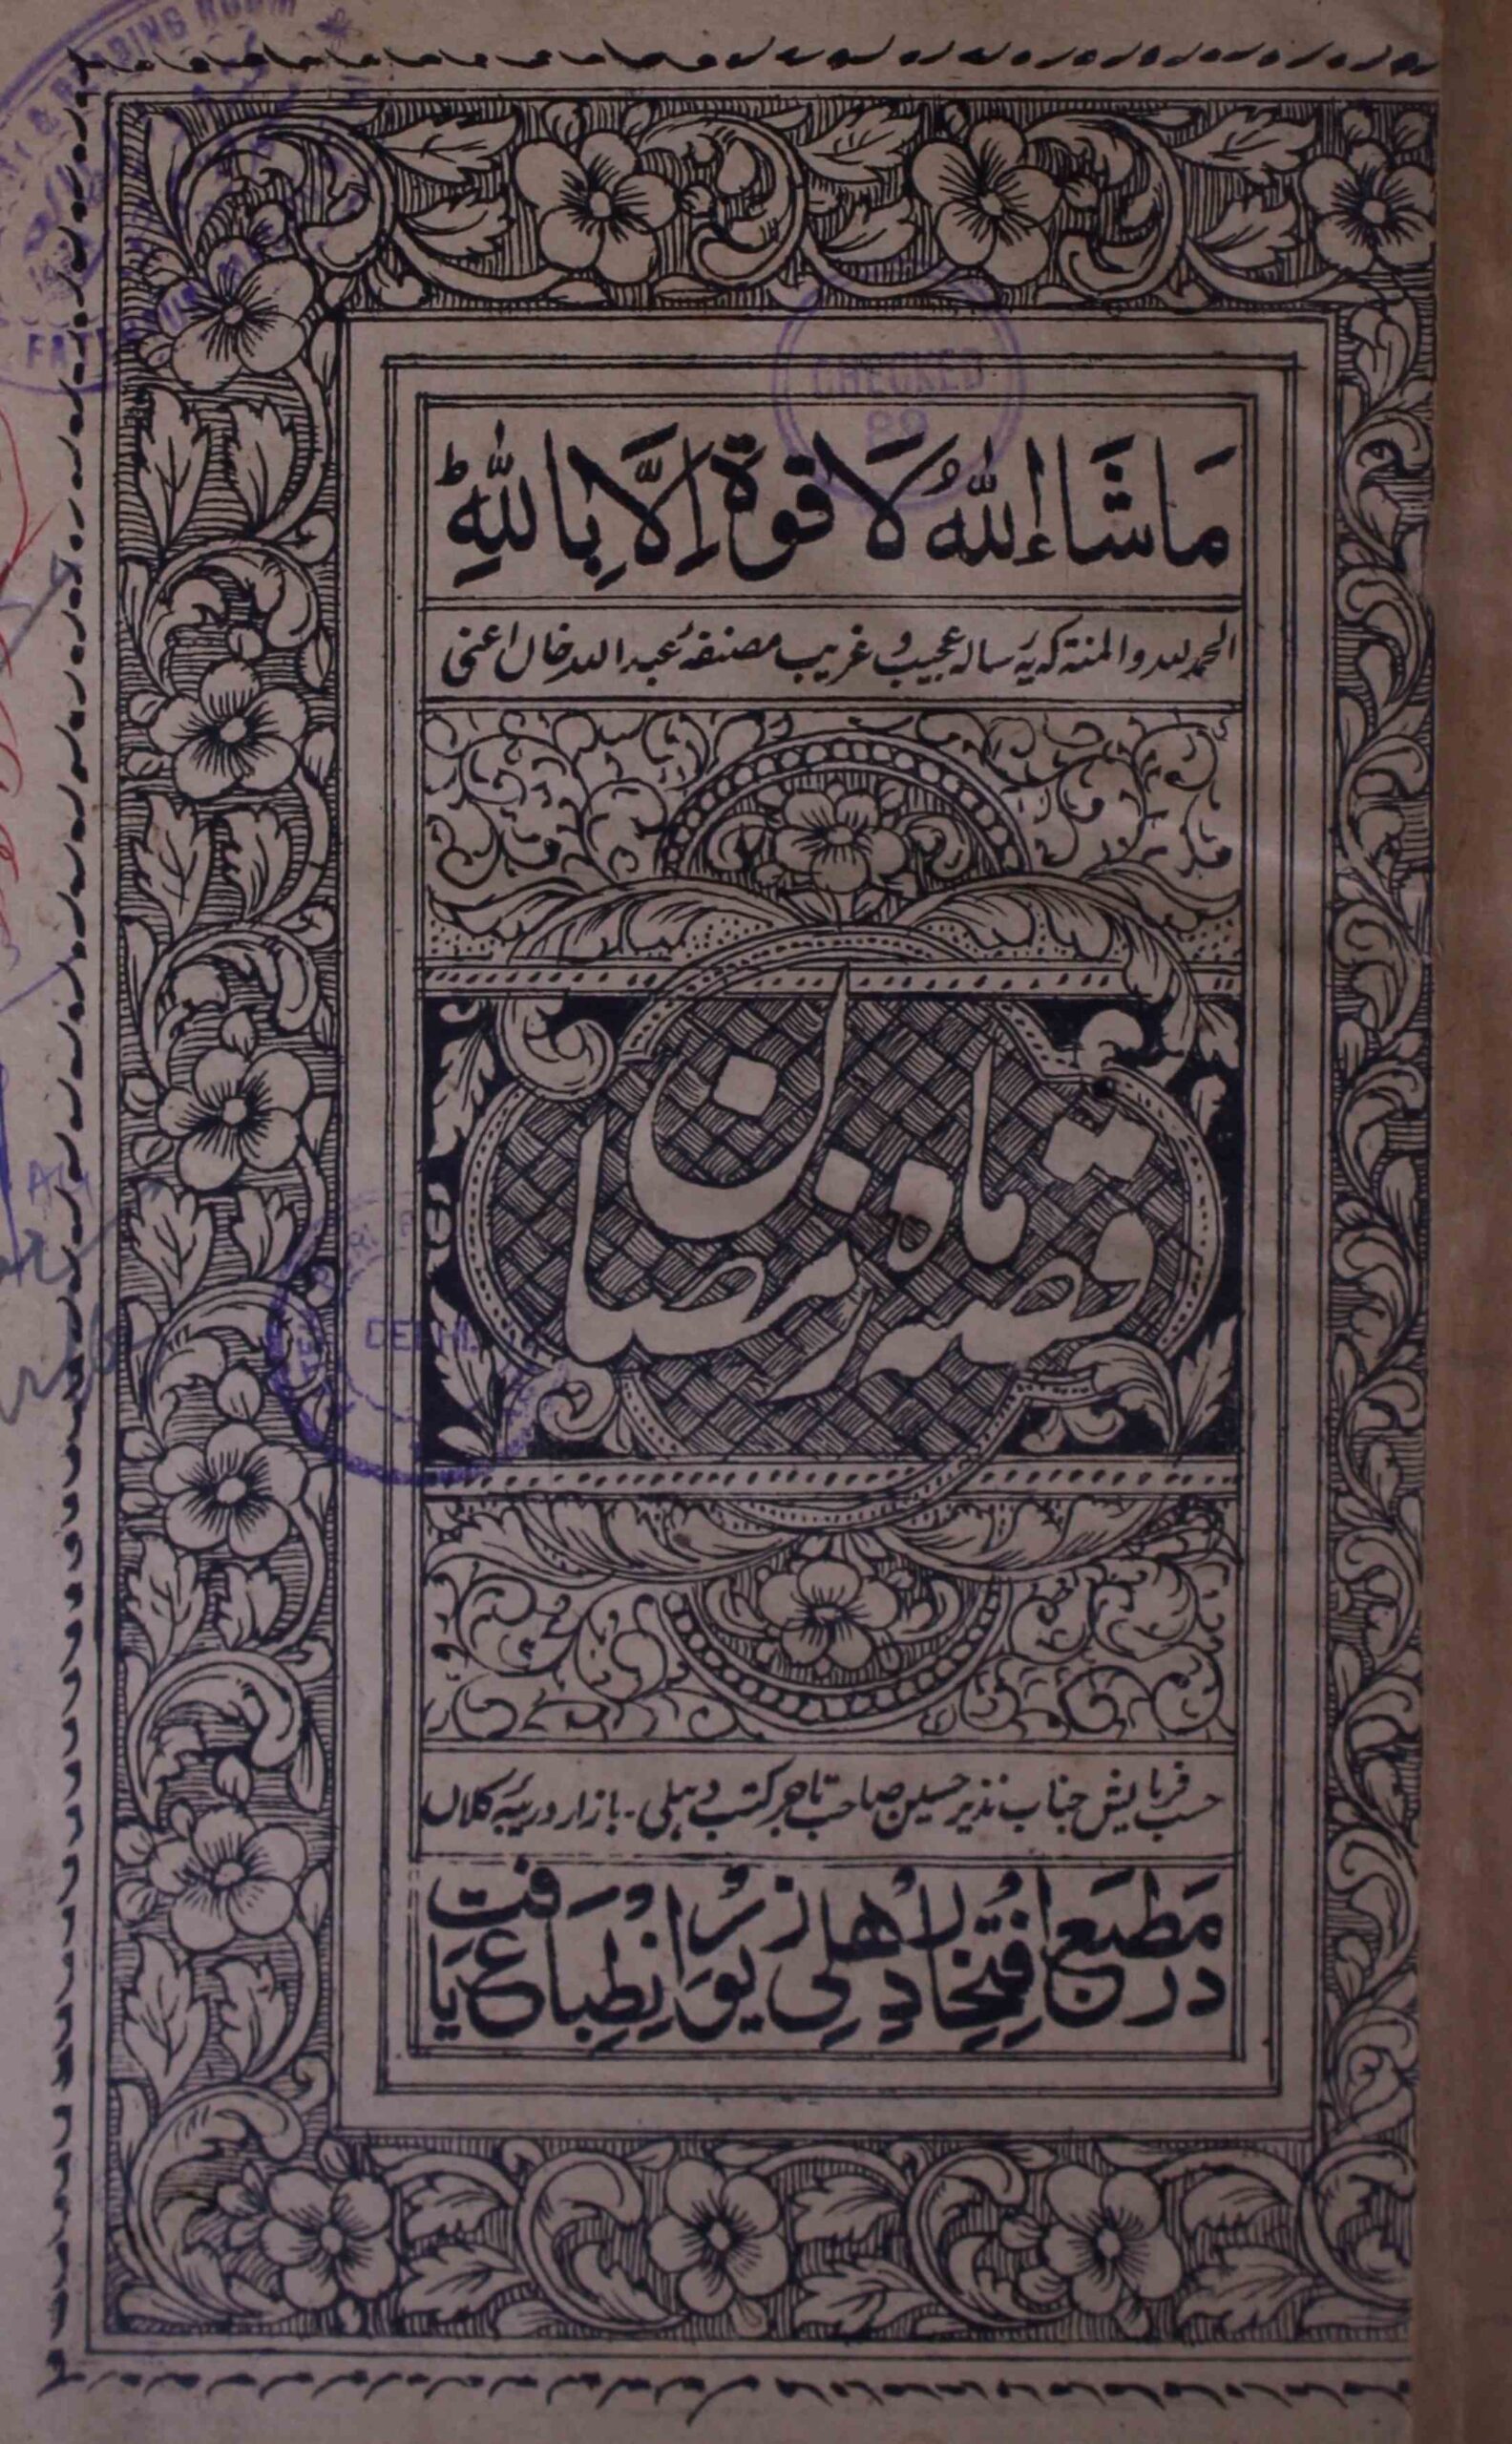 مَاشَاءَ اللّٰهُ لَا قوۃ اِلَّا بِاللّٰهِ ط
الحمد للہ والمنۃ کہ یہ رسالہ عجیب و غریب مصنفہٗ عبد اللہ خاں اعنی
قصہ ماہ رمضان
حسب فرمایش جناب نذیر حسین صاحب تاجر کتب دہلی۔ بازار دریبہ کلاں
در مطبع افتخار دہلی زیور انطباع یافت
CHECKED
DELHI